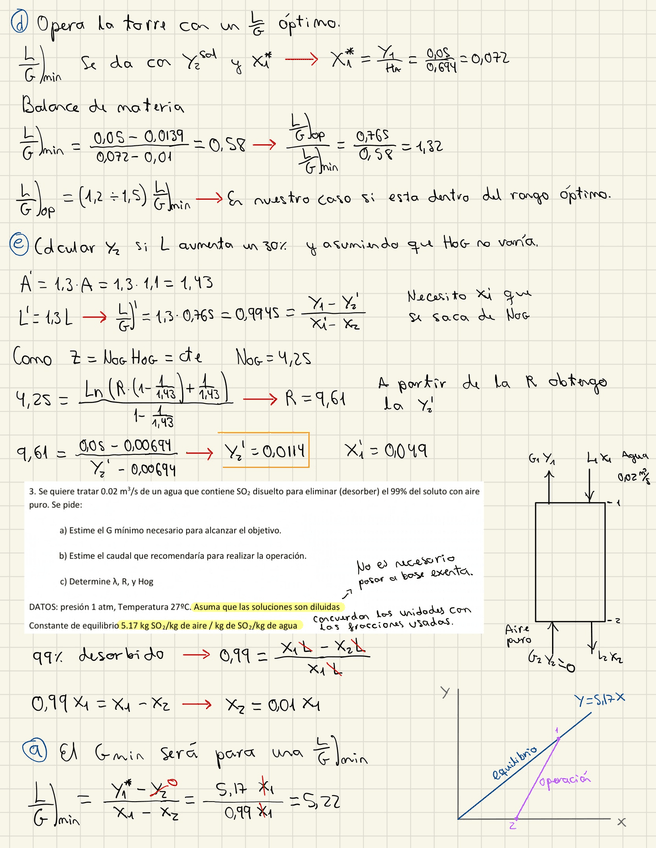 d Opera la torre con un L/G óptimo.
L/G)min Se da con Y2sal y X1* → X1* = Y1/HA = 0,05/0,694 = 0,072
Balance de materia
L/G)min = (0,05 - 0,0139)/(0,072 - 0,01) = 0,58 → L/G)op / L/G)min = 0,765/0,58 = 1,32
L/G)op = (1,2 ÷ 1,5) L/G)min → En nuestro caso si esta dentro del rango óptimo.
e Calcular Y2 si L aumenta un 30% y asumiendo que HOG no varía.
A' = 1,3·A = 1,3·1,1 = 1,43
L' = 1,3L → L/G)' = 1,3·0,765 = 0,9945 = (Y1 - Y2')/(X1' - X2)
Necesito X1 que
se saca de NOG
Como Z = NOG HOG = cte NOG = 4,25
4,25 = Ln(R·(1 - 1/1,43) + 1/1,43) / (1 - 1/1,43) → R = 9,61
A partir de la R obtengo
la Y2'
9,61 = (0,05 - 0,00694)/(Y2' - 0,00694) → Y2' = 0,0114 X1' = 0,049
3. Se quiere tratar 0.02 m³/s de un agua que contiene SO₂ disuelto para eliminar (desorber) el 99% del soluto con aire
puro. Se pide:
a) Estime el G mínimo necesario para alcanzar el objetivo.
b) Estime el caudal que recomendaría para realizar la operación.
c) Determine λ, R, y Hog
No es necesario
pasar a base exenta.
DATOS: presión 1 atm, Temperatura 27ºC. Asuma que las soluciones son diluidas
Constante de equilibrio 5.17 kg SO₂/kg de aire / kg de SO₂/kg de agua
concuerdan las unidades con
las fracciones usadas.
G1 Y1
L1 X1
Agua
0,02 m³/s
1
2
Aire
puro
G2 Y2=0
L2 X2
99% desorbido → 0,99 = (X1 L - X2 L)/(X1 L)
0,99 X1 = X1 - X2 → X2 = 0,01 X1
a El Gmin será para una L/G)min
L/G)min = (Y1* - Y2 0)/(X1 - X2) = 5,17 X1/0,99 X1 = 5,22
Y
Y=5,17X
1
equilibrio
operación
2
X